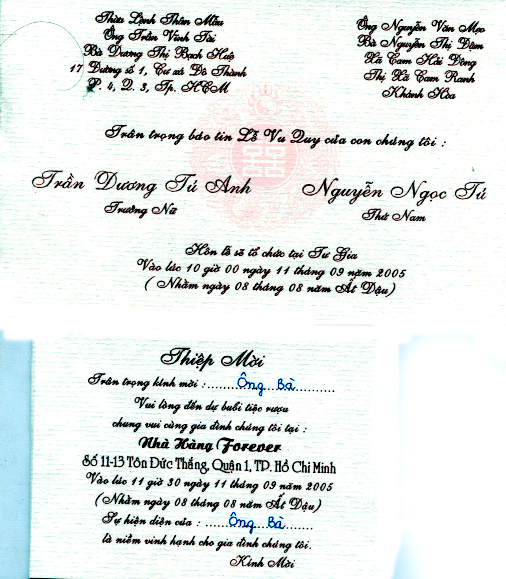 Thừa Lệnh Thân Mẫu
Ông Trần Vinh Tài
Bà Dương Thị Bạch Huệ
17 Đường số 1, Cư xá Đô Thành
P. 4, Q. 3, Tp. HCM
Ông Nguyễn Văn Mẹo
Bà Nguyễn Thị Đậm
Xã Cam Hải Đông
Thị Xã Cam Ranh
Khánh Hòa
Trân trọng báo tin Lễ Vu Quy của con chúng tôi :
Trần Dương Tú Anh
Trưởng Nữ
Nguyễn Ngọc Tú
Thứ Nam
Hôn lễ sẽ tổ chức tại Tư Gia
Vào lúc 10 giờ 00 ngày 11 tháng 09 năm 2005
( Nhằm ngày 08 tháng 08 năm Ất Dậu)
Thiệp Mời
Trân trọng kính mời :.......Ông Bà..........
Vui lòng đến dự buổi tiệc rượu
chung vui cùng gia đình chúng tôi tại :
Nhà Hàng Forever
Số 11-13 Tôn Đức Thắng, Quận 1, TP. Hồ Chí Minh
Vào lúc 11 giờ 30 ngày 11 tháng 09 năm 2005
(Nhằm ngày 08 tháng 08 năm Ất Dậu)
Sự hiện diện của : ......Ông...Bà.......
là niềm vinh hạnh cho gia đình chúng tôi.
Kính Mời